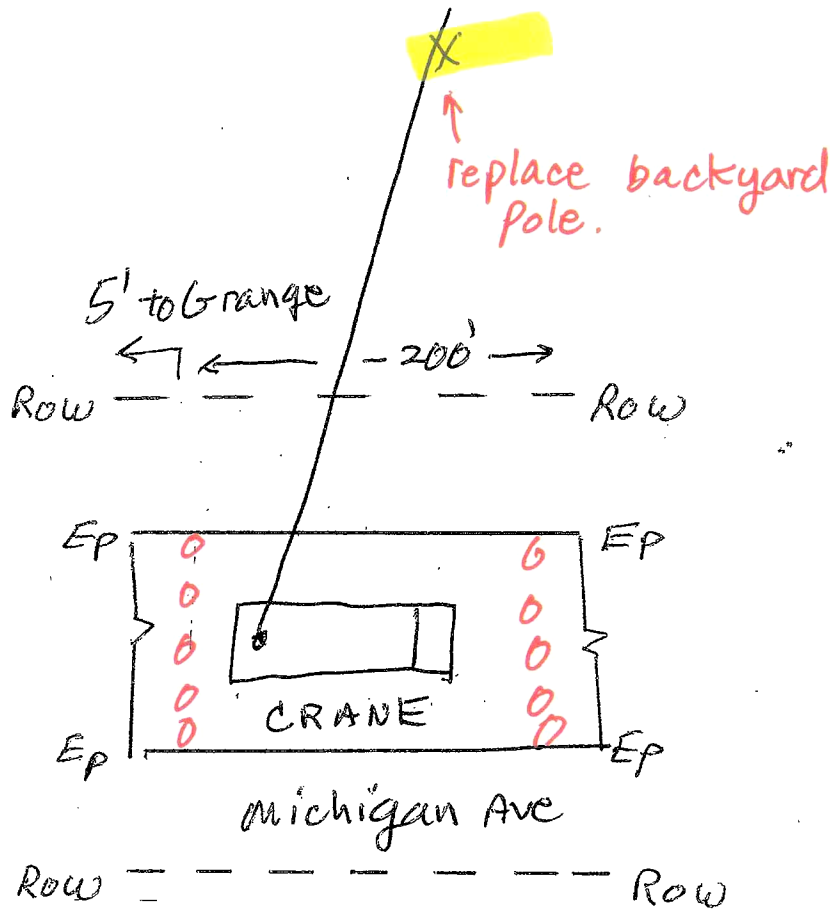 X
replace backyard
pole.
5' to Grange
- 200'
Row Row
Ep Ep
CRANE
Ep Ep
Michigan Ave
Row Row